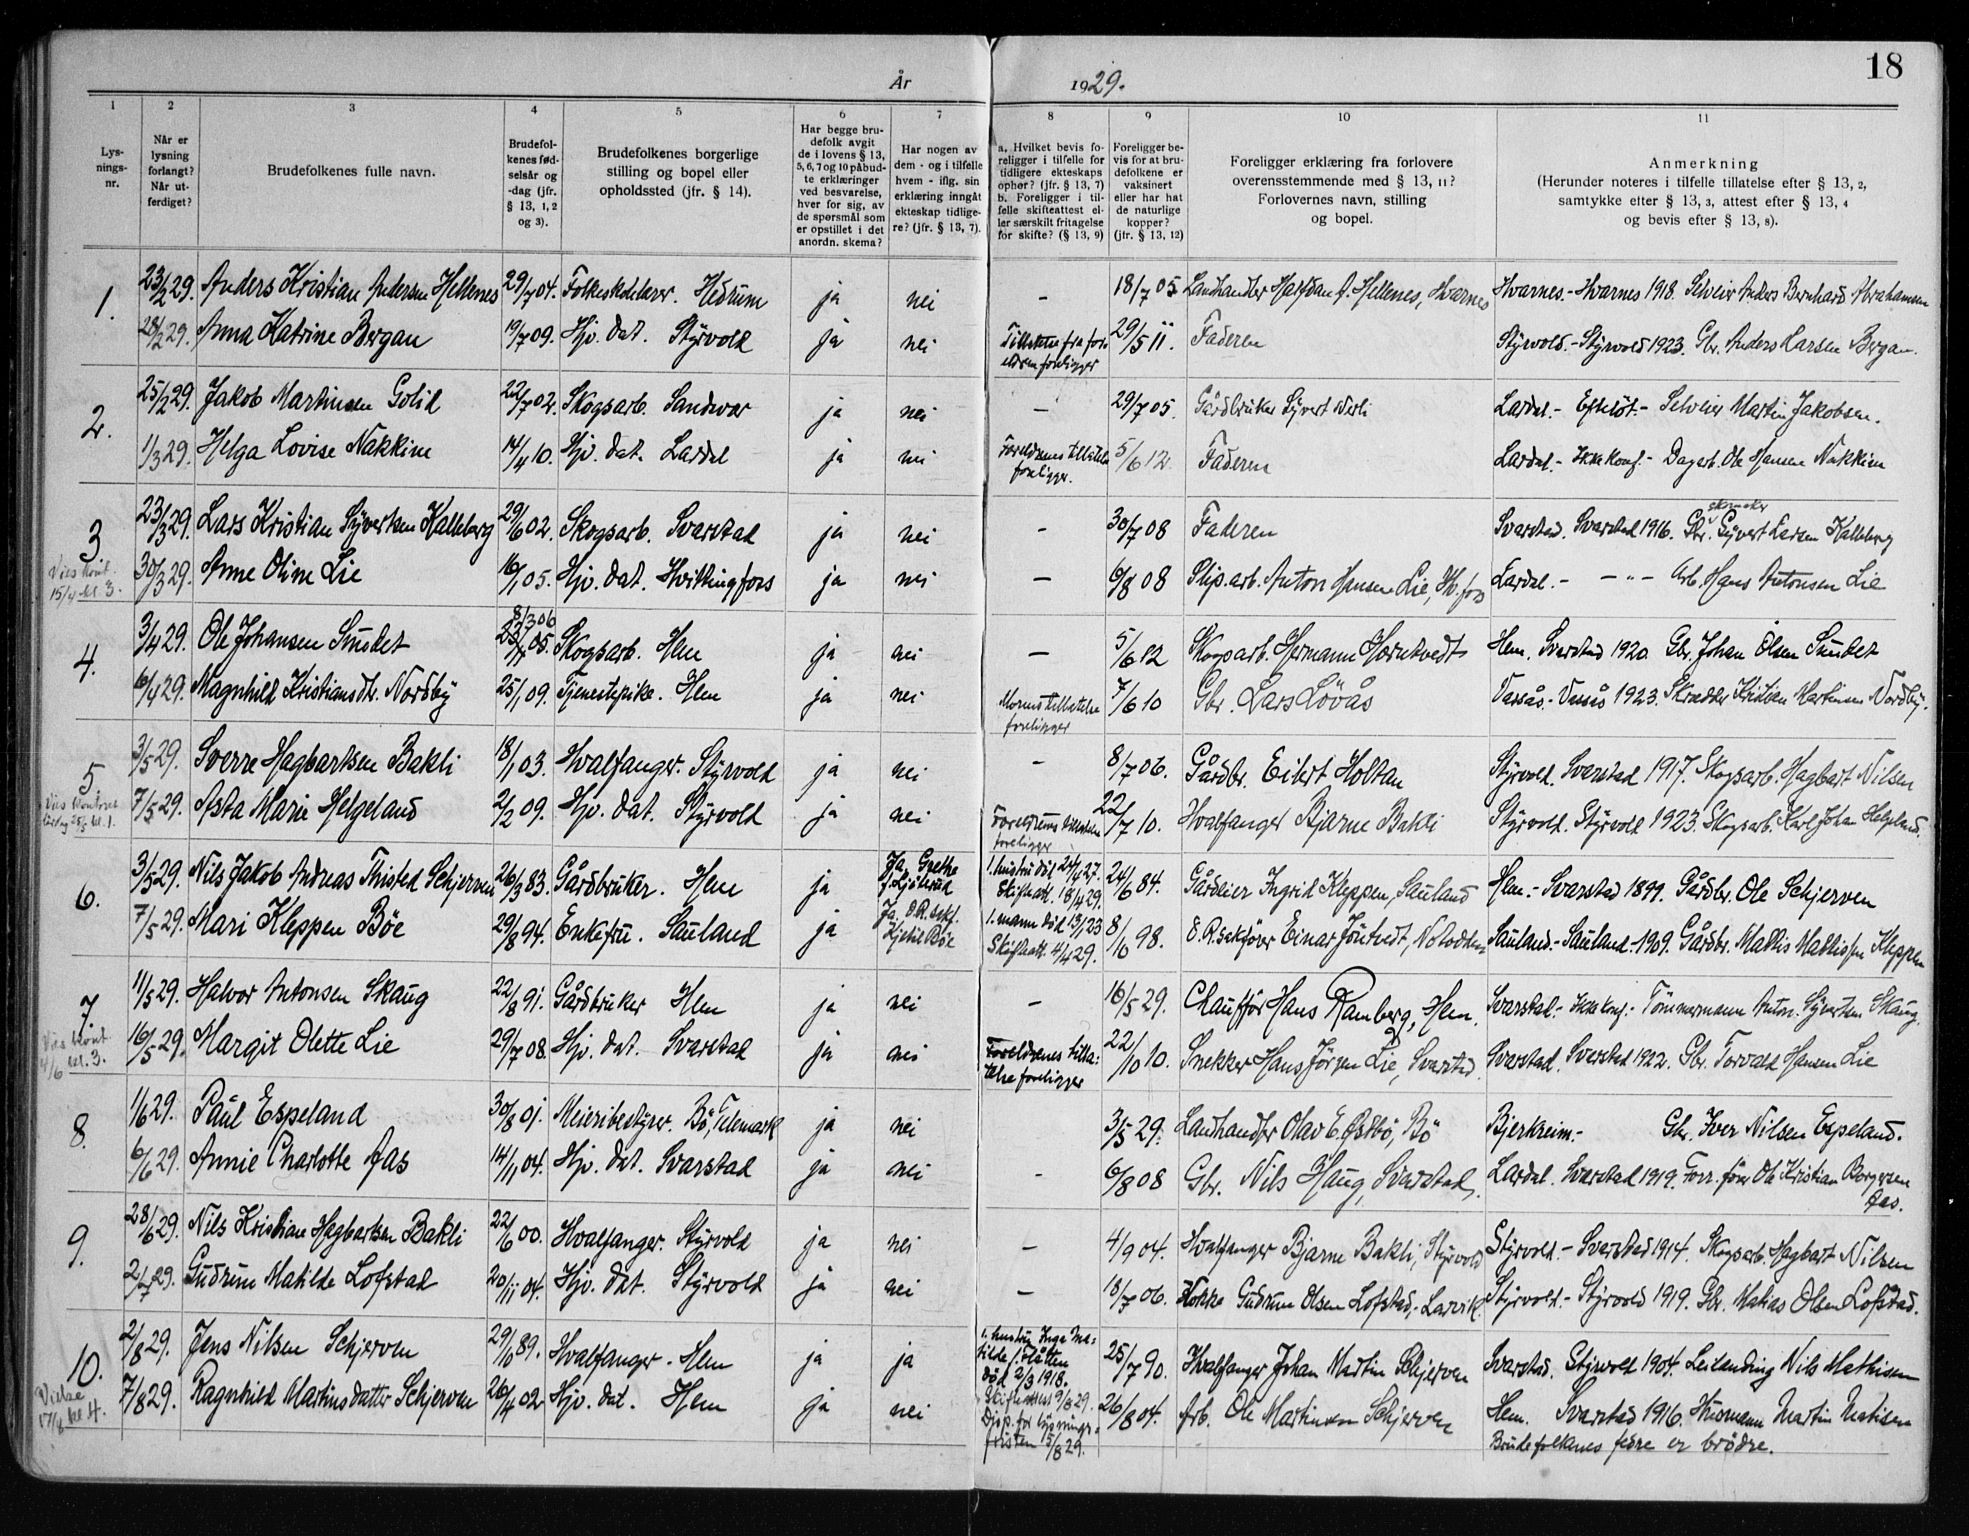 18
År 1929.
1 2 3 4 5 6 7 8 9 10 11
Lys-
nings-
nr.
Når er
lysning
forlangt?
Når ut-
ferdiget?
Brudefolkenes fulle navn.
Brudefol-
kenes fød-
selsår og
-dag (jfr.
§ 13, 1, 2
og 3).
Brudefolkenes borgerlige
stilling og bopel eller
opholdssted (jfr. § 14).
Har begge bru-
defolk avgit
de i lovens § 13,
5, 6, 7 og 10 påbud-
te erklæringer
ved besvarelse,
hver for sig, av
de spørsmål som
er opstillet i det
anordn. skema?
Har nogen av
dem - og i tilfelle
hvem - iflg. sin
erklæring inngått
ekteskap tidlige-
re? (jfr. § 13, 7).
a. Hvilket bevis fo-
religger i tilfelle for
tidligere ekteskaps
ophør? (jfr. § 13, 7)
b. Foreligger i til-
felle skifteattest el-
ler særskilt fritagelse
for skifte? (§ 13, 9)
Foreligger be-
vis for at bru-
defolkene er
vaksinert
eller har hat
de naturlige
kopper?
(jfr. § 13, 12)
Foreligger erklæring fra forlovere
overensstemmende med § 13, 11?
Forlovernes navn, stilling
og bopel.
Anmerkning
(Herunder noteres i tilfelle tillatelse efter § 13, 2,
samtykke efter § 13, 3, attest efter § 13, 4
og bevis efter § 13, 8).
1. 23/2 29. Anders Kristian Andersen Hellenes 29/7 04. Folkeskolelærer. Hedrum ja nei - 18/7 05 Landhandler Halfdan A. Hellenes, Hvarnes Hvarnes.- Hvarnes 1918. Selveier Anders Bernhard Abrahamsen
28/2 29. Anna Katrine Bergan 19/7 09. Hjv. dat. Styrvold ja nei Tillatelse fra for-
eldrene foreligger 29/5 11. Faderen Styrvold.- Styrvold 1923. Gbr. Anders Larsen Bergan.
2. 25/2 29. Jakob Martinsen Golid 22/7 02. Skogsarb. Sandsvær ja nei - 29/7 05. Gårdbruker Syvert Lardal.- Efteløt.- Selveier Martin Jakobsen.
1/3 29. Helga Lovise Nakkim 14/4 10. Hjv. dat. Lardal ja nei Foreldrenes tillatelse
foreligger. 5/6 12. Faderen Lardal.- Ikke konf.- Dagarb. Ole Hansen Nakkim
3. 23/3 29. Lars Kristian Syvertsen Kalleberg 29/6 02. Skogsarb. Svarstad ja nei - 30/7 08 Faderen Svarstad. Svarstad 1916. Gbr. skomaker Syvert Larsen Kalleberg
Vies kont.
15/4 kl. 3.
30/3 29. Anne Oline Lie 16/1 05. Hjv. dat. Hvittingfoss ja nei - 6/8 08 Slip.arb. Anton Hansen Lie, Hv.foss Lardal.- - " - Arb. Hans Antonsen Lie
4. 3/4 29. Ole Johansen Sundet 8/3 06
Skogsarb. Hem ja nei - 5/6 12 Skogsarb. Hermann Hørntvedt Hem. Svarstad 1920. Gbr. Johan Olsen Sundet
6/4 29. Magnhild Kristiansdtr. Nordby 25/1 09. Tjenestepike. Hem ja nei Morens tillatelse
foreligger 7/6 10 Gbr. Lars Løvås Vassås.- Vassås 1923. Skrædder Kristian Martinsen Nordby.
5. 3/5 29. Sverre Hagbartsen Bakli 18/1 03. Hvalfanger. Styrvold ja nei - 8/7 06. Gårdbr. Eilert Holtan Styrvold. Svarstad 1917. Skogsarb. Hagbart Nilsen
Vies kontoret
lørdag 25/5 kl. 1.
7/5 29. Asta Marie Helgeland 2/2 09. Hjv. dat. Styrvold ja nei Foreldrenes tillatelse
foreligger 22/7 10. Hvalfanger Bjarne Bakli Styrvold. Styrvold 1923. Skogsarb. Karl Johan Helgeland.
6. 3/5 29. Nils Jakob Andreas Thisted Schjerven 26/3 83. Gårdbruker. Hem ja Ja, Grethe
f. 1. hustru død 24/4 27.
Skifteatt. 18/4 29. 24/6 84. Gårdeier Ingrid Kleppen, Sauland Hem.- Svarstad 1899. Gårdbr. Ole Schjerven
7/5 29. Mari Kleppen Bøe 29/8 94. Enkefru. Sauland ja Ja. O.R. sakf.
Kjetil Bøe 1. mann død 13/1 23
Skifteatt. 4/4 29. 8/10 98. O.R.sakfører Einar Jøntvedt, Notodden Sauland.- Sauland 1909. Gårdbr. Mathis Mathissen Kleppen
7. 11/5 29. Halvor Antonsen Skaug 22/8 91. Gårdbruker Hem ja nei - 16/5 29. Chauffør Hans Ramberg, Hem. Svarstad.- Ikke konf.- Tømmermann Anton Syvertsen Skaug.
Vies kont.
4/6 kl. 3.
16/5 29. Margit Olette Lie 29/7 08. Hjv. dat. Svarstad ja nei Foreldrenes tilla-
telse foreligger 22/10 10. Snekker Hans Jørgen Lie, Svarstad Svarstad. Svarstad 1922. Gbr. Torvald Hansen Lie
8. 1/6 29. Paul Espeland 30/8 01. Meieribestyrer. Bø, Telemark ja nei 3/5 29. Landhandler Olav E. Østbø, Bø Bjerkreim.- Gbr. Iver Nilsen Espeland.
6/6 29. Annie Charlotte Aas 14/11 04. Hjv. dat. Svarstad ja nei - 6/8 08 Gbr. Nils Haug, Svarstad. Lardal. Svarstad 1919. Forr.fører Ole Kristian Borgersen
Aas.
9. 28/6 29. Nils Kristian Hagbartsen Bakli 22/6 00. Hvalfanger. Styrvold ja nei - 4/9 04. Hvalfanger Bjarne Bakli, Styrvold Styrvold.- Svarstad 1914. Skogsarb. Hagbart Nilsen
2/7 29. Gudrun Matilde Lofstad 20/11 04. Hjv. dat. Styrvold ja nei - 18/7 06. Kokke Gudrun Olsen Lofstad, Larvik. Styrvold.- Styrvold 1919. Gbr. Matias Olsen Lofstad.
10. 2/8 29. Jens Nilsen Schjerven 29/10 89. Hvalfanger. Hem ja ja 1. hustru Inga Ma-
tilde f. Slåtten
død 2/3 1918.
Skifteattest 9/8 29. 25/7 90. Hvalfanger Johan Martin Schjerven Svarstad. Styrvold 1904. Leilending Nils Mathisen
Vielse
17/8 kl 4.
7/8 29. Ragnhild Martinsdatter Schjerven 26/4 02 Hjv. dat. Hem ja nei Disp. for lysnings-
fristen 15/8 29. 26/8 04. Arb. Ole Martinsen Schjerven Hem. Svarstad 1916. Husmann Martin Matisen
Brudefolkenes fedre er brødre.